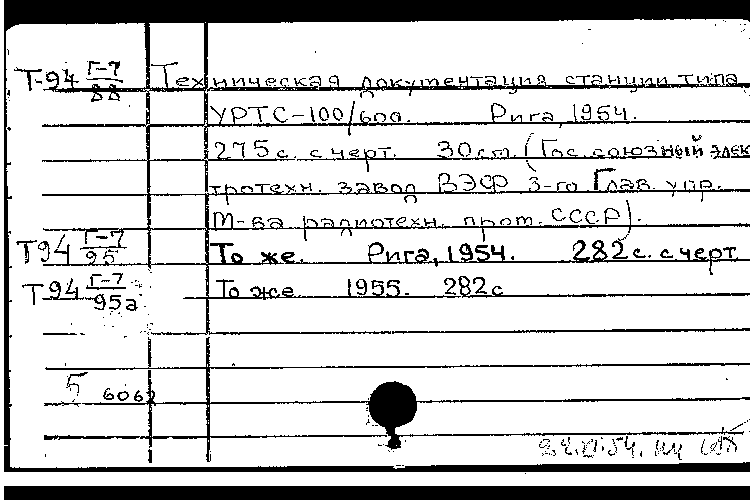 Т-94 Г-7/88 Техническая документация станции типа
УРТС-100/600. Рига, 1954.
275с. с черт. 30см. (Гос. союзный элек
тротехн. завод ВЭФ 3-го Глав. упр.
М-ва радиотехн. пром. СССР).
Т94 Г-7/95 То же. Рига, 1954. 282с. с черт
Т94 Г-7/95а То же 1955. 282с
5 6062